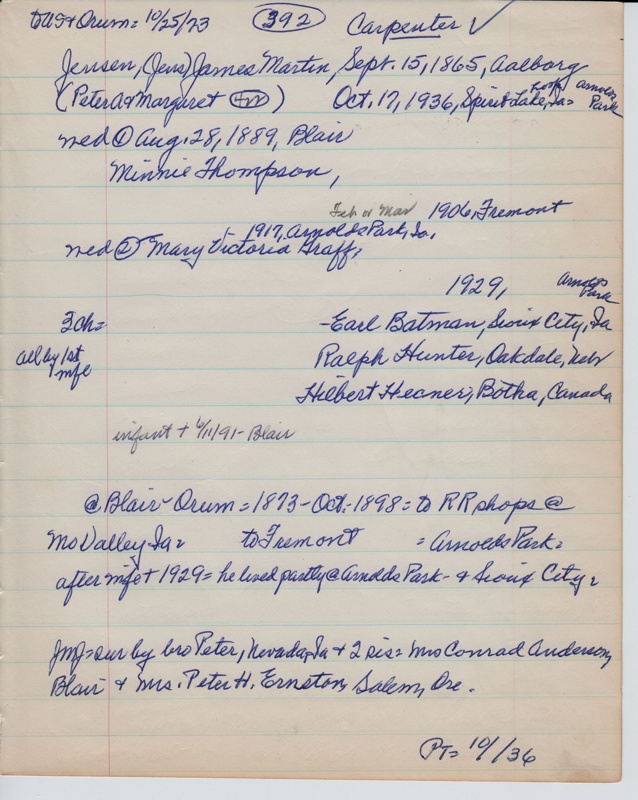 to US & Orum = 10/25/73 392 Carpenter ✓
Jensen, (Jens) James Martin, Sept. 15, 1865, Aalborg
(Peter A & Margaret ) Oct. 17, 1936, Spirit Lake, Ia = hosp Arnolds Park
wed ① Aug. 28, 1889, Blair
Minnie Thompson,
Feb or Mar 1906, Fremont
1917, Arnolds Park, Ia.
wed ② Mary Victoria Graff,
1929, Arnolds Park
3 ch = - Earl Batman, Sioux City, Ia
all by 1st wife Ralph Hunter, Oakdale, Neb
Hilbert Hecner, Botha, Canada
infant + 6/11/91 - Blair
@ Blair - Orum = 1873 - Oct. 1898 = to RR shops @
Mo Valley Ia = to Fremont = Arnolds Park =
after wife + 1929 = he lived partly @ Arnolds Park - & Sioux City =
JMJ = sur by bro Peter, Nevada, Ia & 2 sis = Mrs Conrad Anderson,
Blair & Mrs. Peter H. Ernston, Salem, Ore.
PT = 10/36